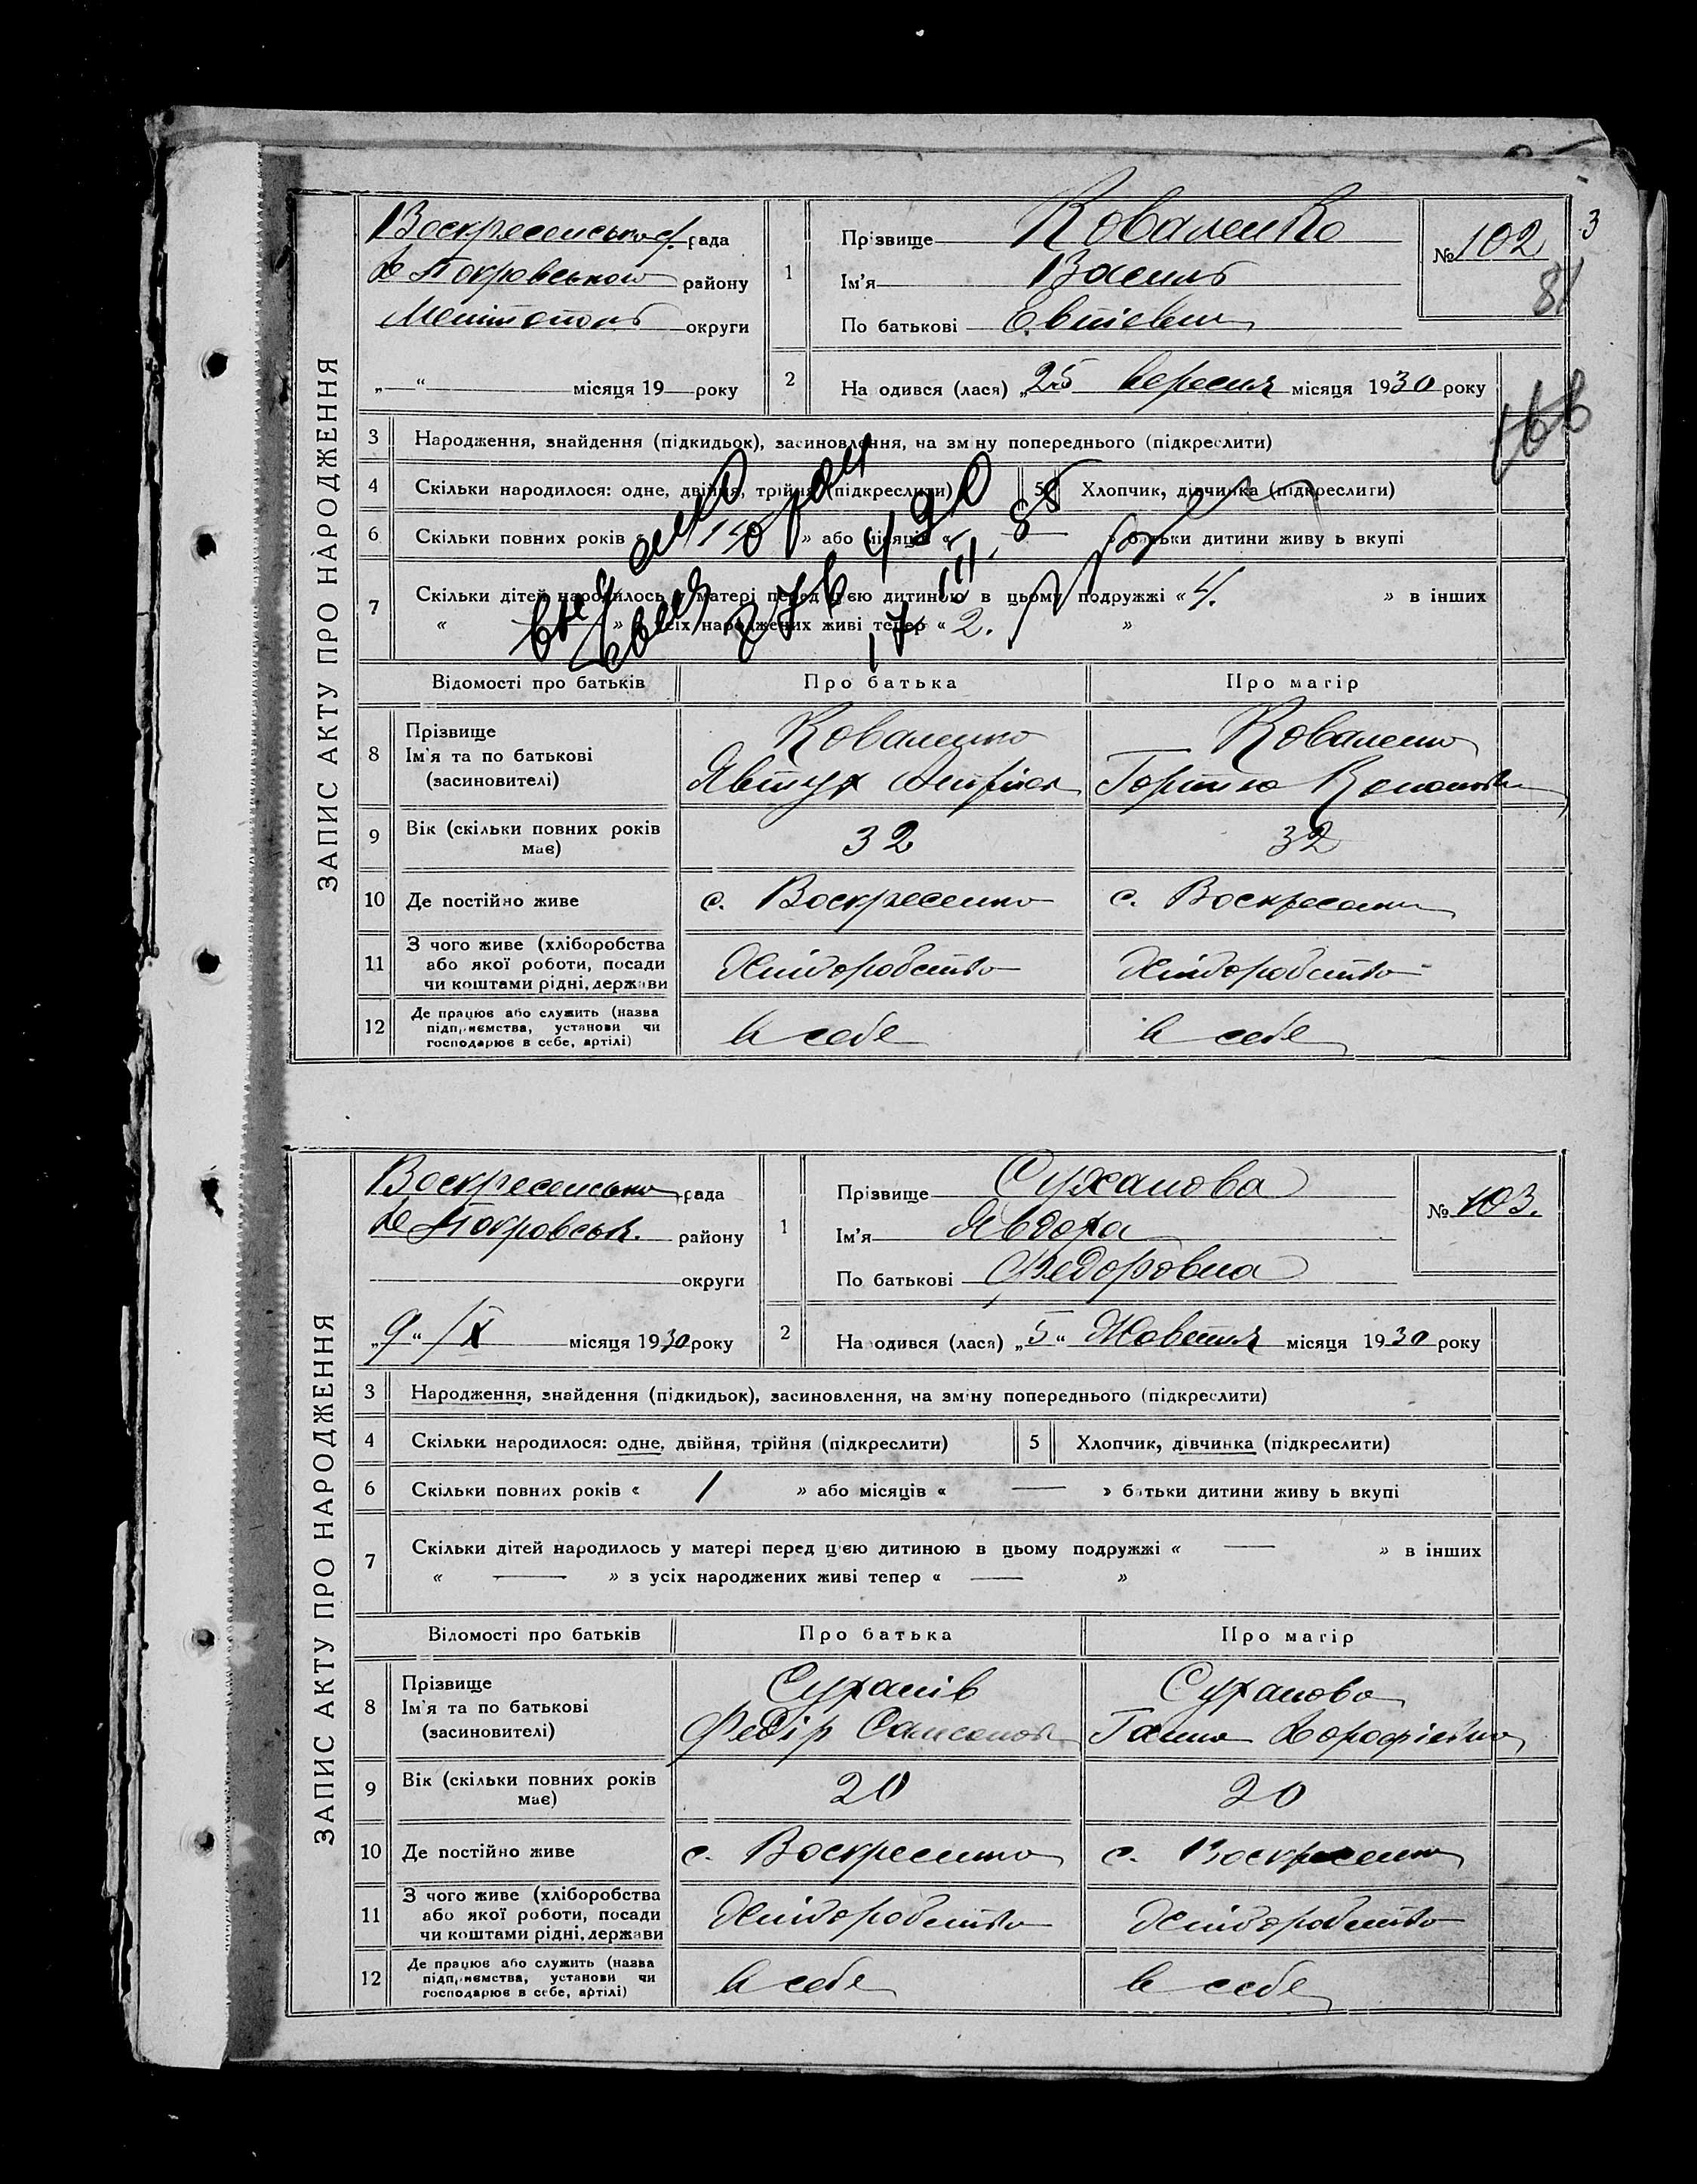 3
ЗАПИС АКТУ ПРО НАРОДЖЕННЯ
Воскресенської рада
Покровського району
Мелітополь округи
„ “ місяця 19 року
1
Прізвище Коваленко
Ім'я Василь
По батькові Евтіевич
№ 102
81
2
Народився (лася) „25 вересня місяця 1930 року
166
3 Народження, знайдення (підкидьок), засиновлення, на зміну попереднього (підкреслити)
4 Скільки народилося: одне, двійня, трійня (підкреслити) 5 Хлопчик, дівчинка (підкреслити)
6 Скільки повних років « 15 » або місяців « — » батьки дитини живуть вкупі
7 Скільки дітей народилось у матері перед цією дитиною в цьому подружжі « 4. » в інших
« » з усіх народжених живі тепер « 2. »
17 III 55
Відомості про батьків Про батька Про матір
8 Прізвище Коваленко Коваленко
Ім'я та по батькові Явтух
(засиновителі)
9 Вік (скільки повних років має) 32 32
10 Де постійно живе с. Воскресенка с. Воскресенка
11 З чого живе (хліборобства або якої роботи, посади чи коштами рідні, держави Хліборобство Хліборобство
12 Де працює або служить (назва підприємства, установи чи господарює в себе, артілі) в себе в себе
ЗАПИС АКТУ ПРО НАРОДЖЕННЯ
Воскресенська рада
Покровськ. району
округи
„9“ /X місяця 1930 року
1
Прізвище Суханова
Ім'я Явдоха
По батькові Федоровна
№ 103.
2
Народився (лася) „5“ Жовтня місяця 1930 року
3 Народження, знайдення (підкидьок), засиновлення, на зміну попереднього (підкреслити)
4 Скільки народилося: одне, двійня, трійня (підкреслити) 5 Хлопчик, дівчинка (підкреслити)
6 Скільки повних років « 1 » або місяців « — » батьки дитини живуть вкупі
7 Скільки дітей народилось у матері перед цією дитиною в цьому подружжі « — » в інших
« — » з усіх народжених живі тепер « — »
Відомості про батьків Про батька Про матір
8 Прізвище Суханів Суханова
Ім'я та по батькові Федір Самсонов Ганна Дорофіевна
(засиновителі)
9 Вік (скільки повних років має) 20 20
10 Де постійно живе с. Воскресенка с. Воскресенка
11 З чого живе (хліборобства або якої роботи, посади чи коштами рідні, держави Хліборобство Хліборобство
12 Де працює або служить (назва підприємства, установи чи господарює в себе, артілі) в себе в себе